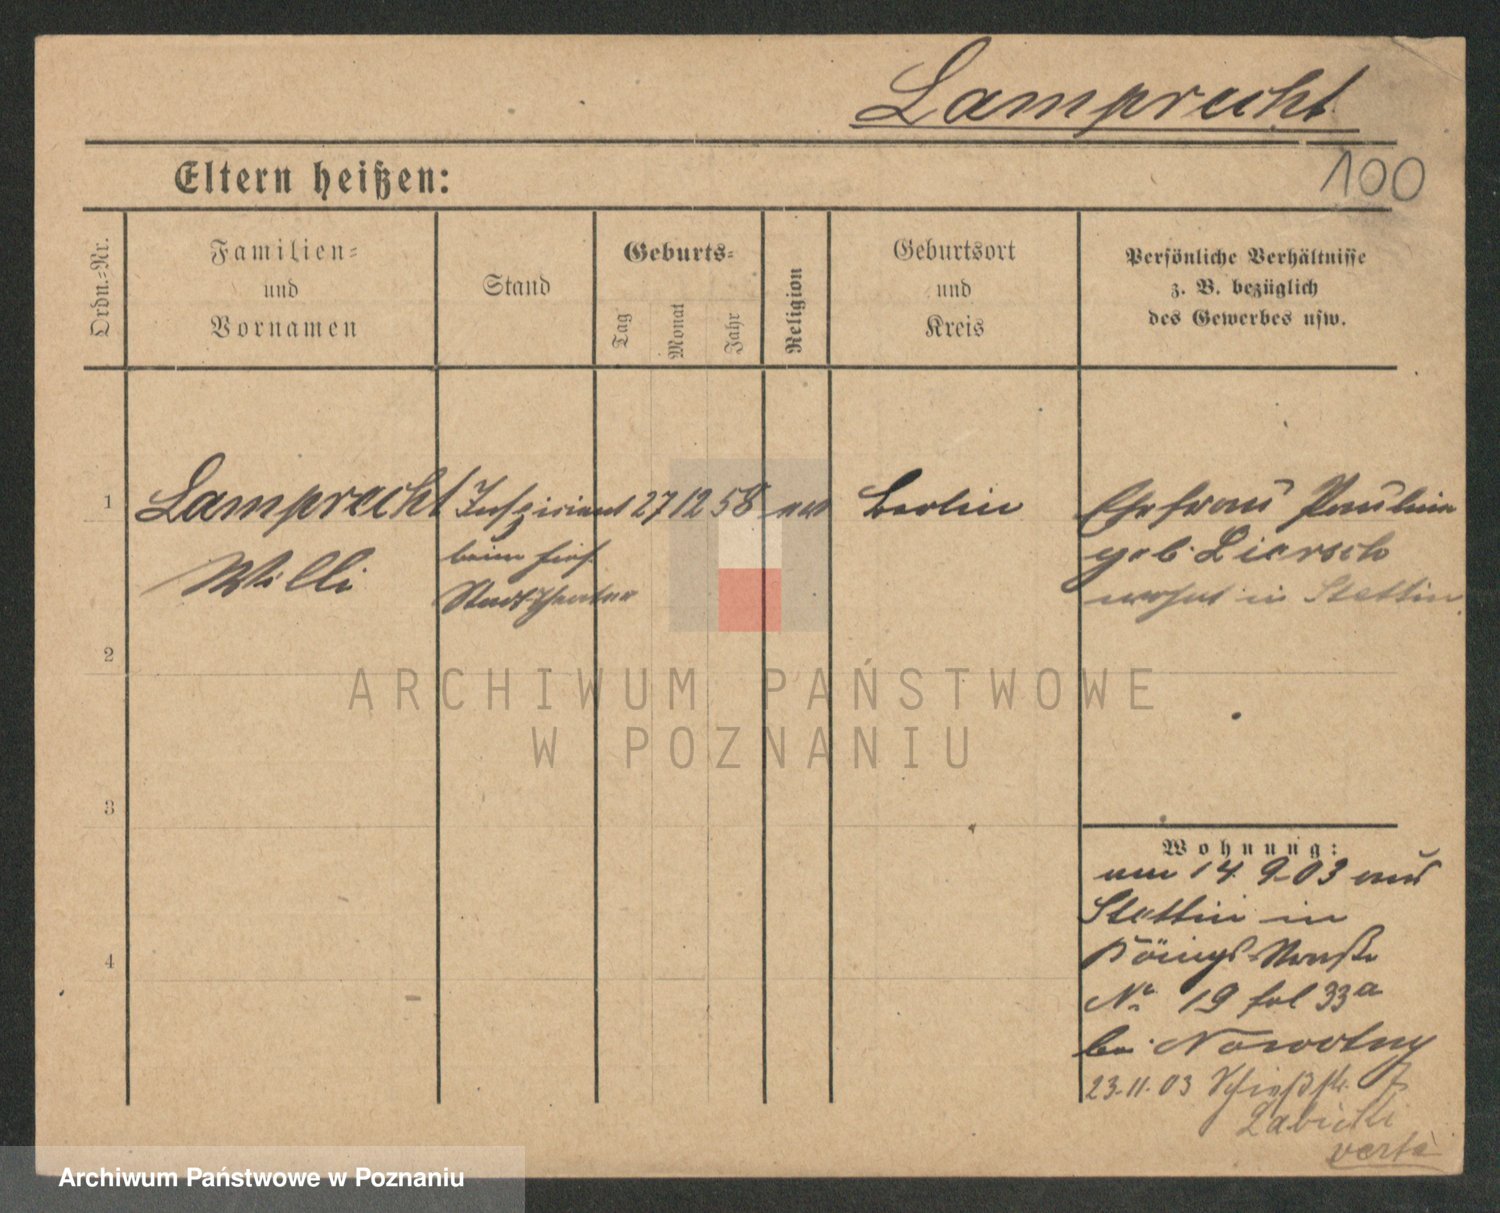 Lamprecht
100
Eltern heißen:
Ordn.=Nr.
Familien=
und
Vornamen
Stand
Geburts=
Tag
Monat
Jahr
Religion
Geburtsort
und
Kreis
Persönliche Verhältnisse
z. B. bezüglich
des Gewerbes usw.
1
Lamprecht
Willi
Inspizient
beim hies.
Stadttheater
27 12 58
Berlin
Ehefrau Pauline
geb. Liersch
wohnt in Stettin
2
ARCHIWUM PAŃSTWOWE
W POZNANIU
3
4
Wohnung:
am 14 9 03 aus
Stettin in
Königs Straße
No 19 fol 33a
bei Nowotny
23.11.03 Schießstr. 7
Labicki
verte
Archiwum Państwowe w Poznaniu